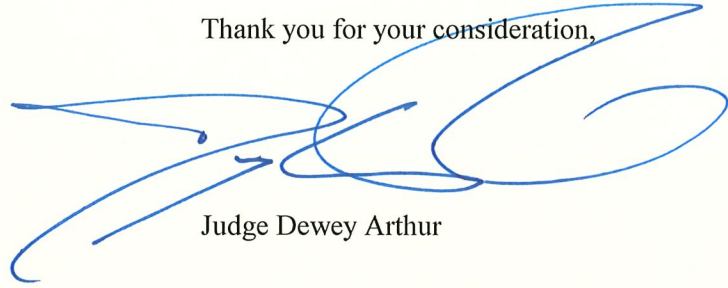 Thank you for your consideration,
Judge Dewey Arthur